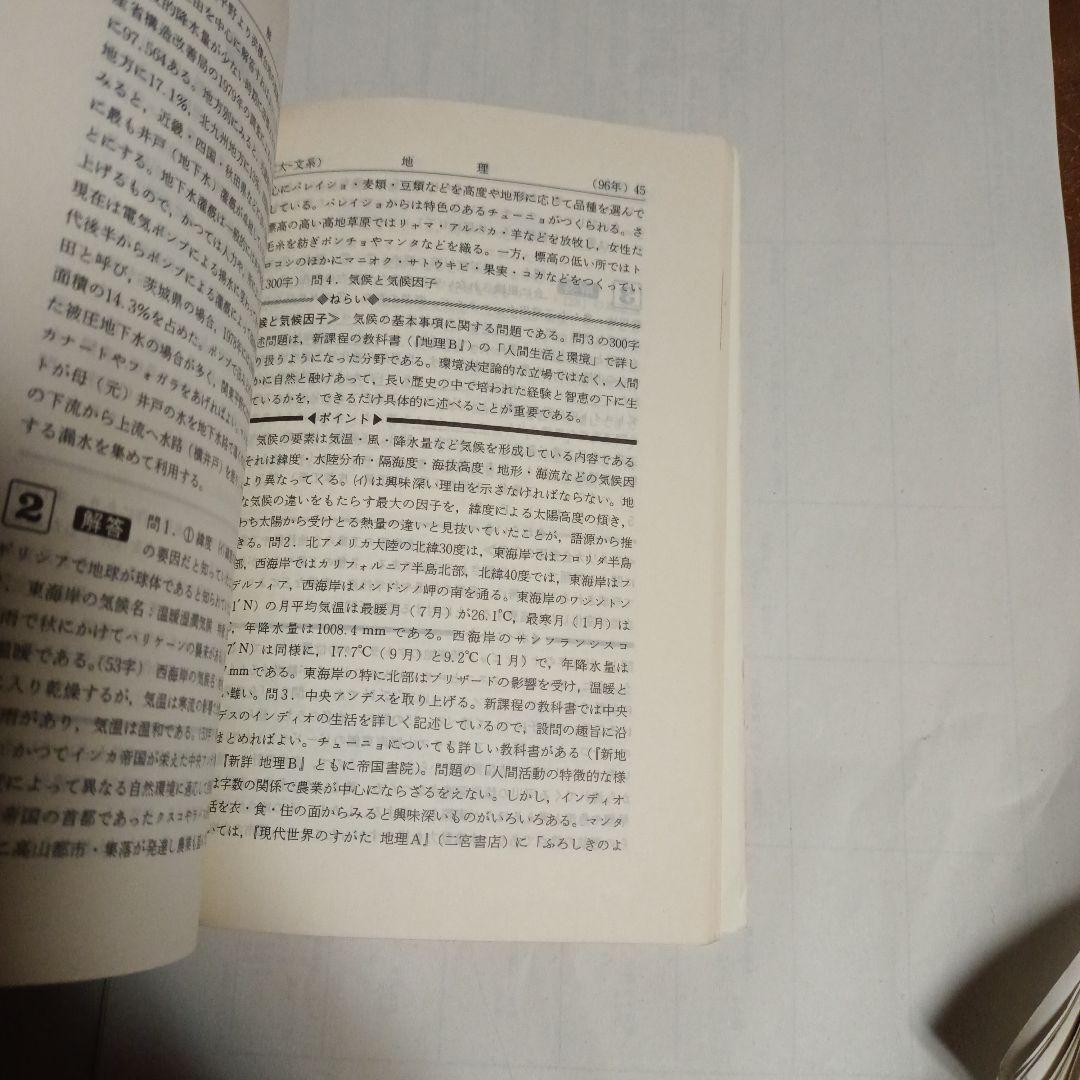 に97.564ある。地方別にみると、
地方に17.1%，北九州地方に13%，
みると，近畿・四国・秋田県など
に最も井戸（地下水）灌漑が
とにする。地下水灌漑は一般的に
上げるもので，かつては人力や，
現在は電気ポンプによる揚水に
代後半からポンプによる灌漑によって
田と呼び，茨城県の場合，1978年に
面積の14.3%を占めた。ポンプで
た被圧地下水の場合が多く，関東平野
カナートやフォガラをあげればよい。
トが母（元）井戸の水を地下水路で
の下流から上流へ水路（横井戸）を
する漏水を集めて利用する。
2 解答 問1．①緯度
の要因だと知っていた
ギリシアで地球が球体であると知られて
東海岸の気候名：温暖湿潤気候
雨で秋にかけてハリケーンの襲来が
温暖である。(53字) 西海岸の気候名
に入り乾燥するが，気温は寒流の影響で
雨があり，気温は温和である。
かつてインカ帝国が栄えた中央ア
によって異なる自然環境に適応して
帝国の首都であったクスコや
に高山都市・集落が発達し農業も
大-文系） 地 理 （96年）45
心にバレイショ・麦類・豆類などを高度や地形に応じて品種を選んで
している。バレイショからは特色のあるチューニョがつくられる。さ
標高の高い高地草原ではリャマ・アルパカ・羊などを放牧し，女性た
毛糸を紡ぎポンチョやマンタなどを織る。一方，標高の低い所ではト
ロコシのほかにマニオク・サトウキビ・果実・コカなどをつくってい
300字） 問4．気候と気候因子
◆ねらい◆
候と気候因子≫ 気候の基本事項に関する問題である。問3の300字
述問題は，新課程の教科書（『地理B』）の「人間生活と環境」で詳し
り扱うようになった分野である。環境決定論的な立場ではなく，人間
かに自然と融けあって，長い歴史の中で培われた経験と智恵の下に生
ているかを，できるだけ具体的に述べることが重要である。
◀ポイント▶
気候の要素は気温・風・降水量など気候を形成している内容である
それは緯度・水陸分布・隔海度・海抜高度・地形・海流などの気候因
より異なってくる。(イ)は興味深い理由を示さなければならない。地
な気候の違いをもたらす最大の因子を，緯度による太陽高度の傾き，
わち太陽から受けとる熱量の違いと見抜いていたことが，語源から推
きる。問2．北アメリカ大陸の北緯30度は，東海岸ではフロリダ半島
部，西海岸ではカリフォルニア半島北部，北緯40度では，東海岸はフ
デルフィア，西海岸はメンドシノ岬の南を通る。東海岸のワシントン
1′N）の月平均気温は最暖月（7月）が26.1℃，最寒月（1月）は
，年降水量は1008.4 mm である。西海岸のサンフランシスコ
7′N）は同様に，17.7℃（9月）と9.2℃（1月）で，年降水量は
mmである。東海岸の特に北部はブリザードの影響を受け，温暖と
い難い。問3．中央アンデスを取り上げる。新課程の教科書では中央
デスのインディオの生活を詳しく記述しているので，設問の趣旨に沿
まとめればよい。チューニョについても詳しい教科書がある（『新地
『新詳 地理B』ともに帝国書院）。問題の「人間活動の特徴的な様
は字数の関係で農業が中心にならざるをえない。しかし，インディオ
活を衣・食・住の面からみると興味深いものがいろいろある。マンタ
いては，『現代世界のすがた 地理A』（二宮書店）に「ふろしきのよ